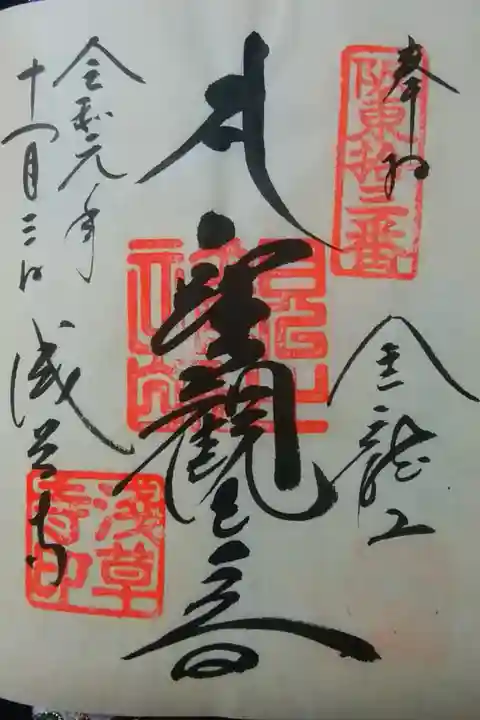 奉拝
阪東拾三番
金龍山
聖観世音
令和元年
十一月三日
浅草寺
浅草寺印